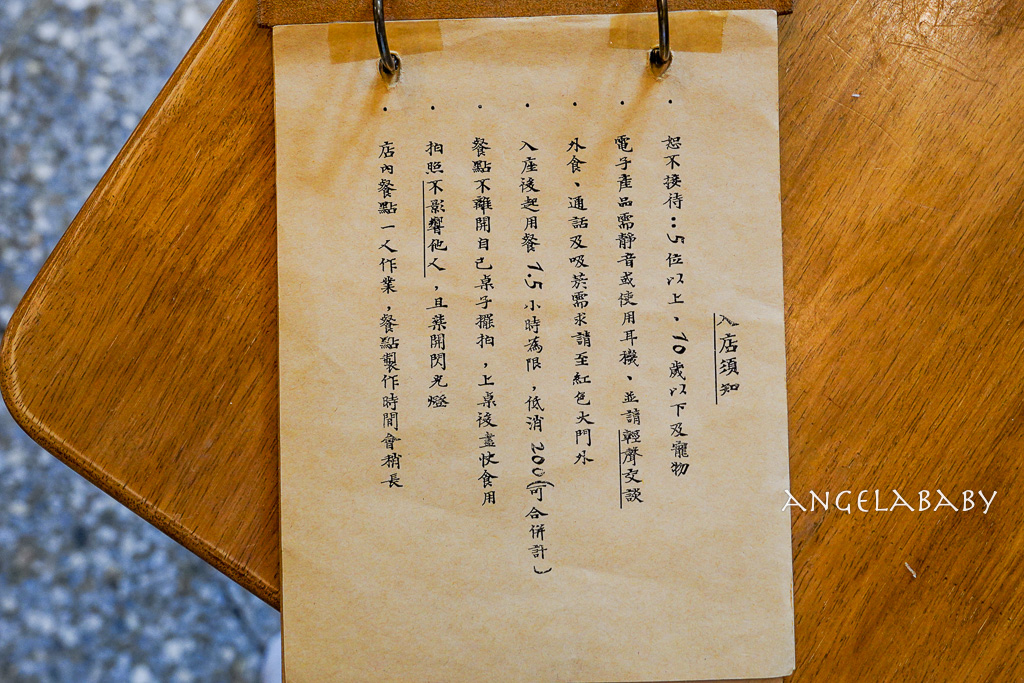 入店須知
・恕不接待:5位以上、10歲以下及寵物
・電子產品需靜音或使用耳機、並請輕聲交談
・外食、通話及吸菸需求請至紅色大門外
・入座後起用餐1.5小時為限，低消200(可合併計)
・餐點不離開自己桌子擺拍，上桌後盡快食用
・拍照不影響他人，且禁開閃光燈
・店內餐點一人作業，餐點製作時間會稍長
ANGELABABY